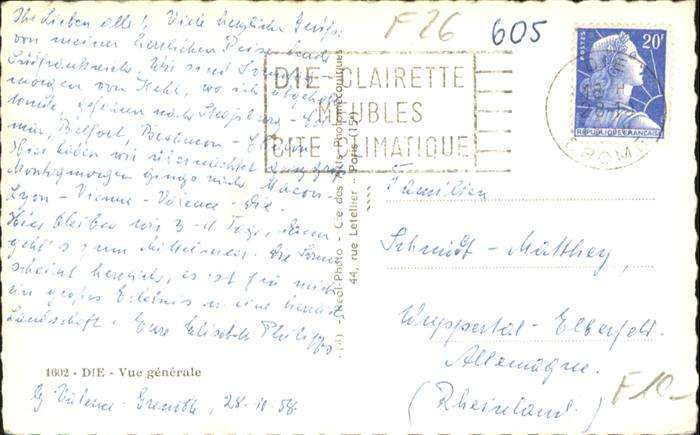 Ihr Lieben alle! Viele herzliche Grüße
von meiner herrlichen Reise nach
Südfrankreich. Wir sind Sonntag
morgen von Kehl, wo ich
gefahren nach Straßburg - Col-
mar, Belfort, Besançon -
Hier haben wir übernachtet
Montagmorgen ging's nach Macon -
Lyon - Vienne - Valence - Die.
Hier bleiben wir 3-4 Tage, dann
geht's zum Mittelmeer. Die Sonne
scheint herrlich, es ist für mich
ein großes Erlebnis u. eine herrliche
Landschaft. Eure Elisabeth Philipps
1602 - DIE - Vue générale
Valence - Grenoble, 28.10.58.
(R) - Real-Photo - Cie des Arts Photomécaniques
44, rue Letellier - Paris (15e)
F26
605
DIE - CLAIRETTE
MEUBLES
CITE CLIMATIQUE
POSTES
20F
REPUBLIQUE FRANÇAISE
DROME
Familien
Schmidt - Mütthey,
Wuppertal - Elberfeld.
Allemagne.
(Rheinland)
F10-